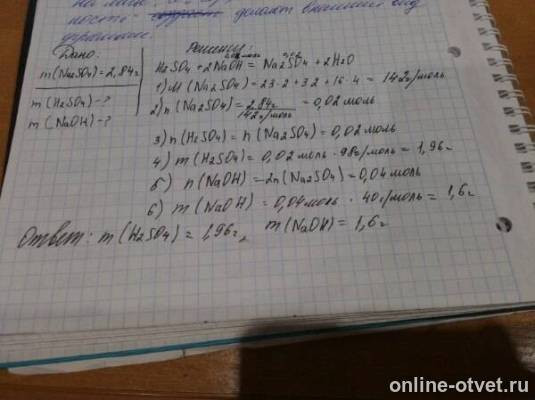 ность - делают внешний вид
Дано:
Решение:
m(Na2SO4)=2,84г
H2SO4 + 2NaOH = Na2SO4 + 2H2O
1) M(Na2SO4) = 23·2+32+16·4 = 142г/моль
m(H2SO4)-?
2) n(Na2SO4) = 2,84г/142г/моль = 0,02 моль
m(NaOH)-?
3) n(H2SO4) = n(Na2SO4) = 0,02 моль
4) m(H2SO4) = 0,02 моль · 98г/моль = 1,96г
5) n(NaOH) = 2n(Na2SO4) = 0,04 моль
6) m(NaOH) = 0,04 моль · 40г/моль = 1,6г
Ответ: m(H2SO4) = 1,96г, m(NaOH) = 1,6г
online-otvet.ru